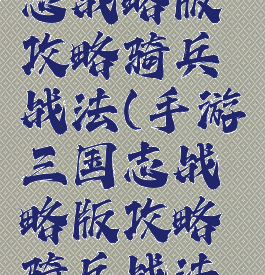 志战略版
攻略骑兵
战法(手游
三国志战
略版攻略
骑兵战法